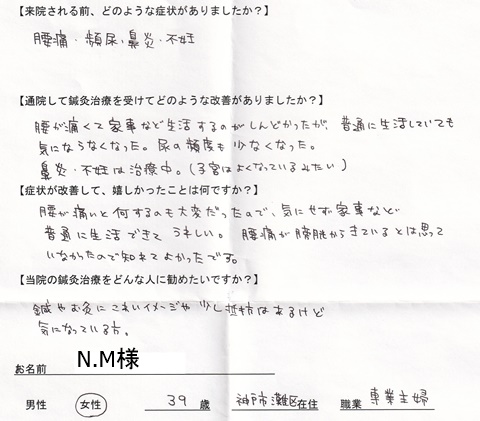 【来院される前、どのような症状がありましたか？】
腰痛・頻尿、鼻炎・不妊
【通院して鍼灸治療を受けてどのような改善がありましたか？】
腰が痛くて家事など生活するのがしんどかったが、普通に生活していても
気にならなくなった。尿の頻度も少なくなった。
鼻炎・不妊は治療中。(子宮はよくなっているみたい)
【症状が改善して、嬉しかったことは何ですか？】
腰が痛いと何するのも大変だったので、気にせず家事など
普通に生活できて うれしい。腰痛が膀胱からきているとは思って
いなかったので知れてよかったです。
【当院の鍼灸治療をどんな人に勧めたいですか？】
鍼やお灸にこわいイメージや少し抵抗はあるけど
気になっている方。
お名前 N.M様
男性 女性 39 歳 神戸市灘区在住 職業 専業主婦